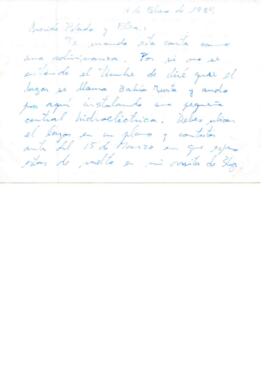 de Febrero de 1984
Querido Pelado y Elsa:
Te mando esta carta como
una adivinanza. Por si no se
entiende el timbre te diré que el
lugar se llama Bahía Murta y ando
por aquí instalando una pequeña
central hidroeléctrica. Debes ubicar
el lugar en un plano y contestar
antes del 15 de Marzo en que espero
estar de vuelta en mi